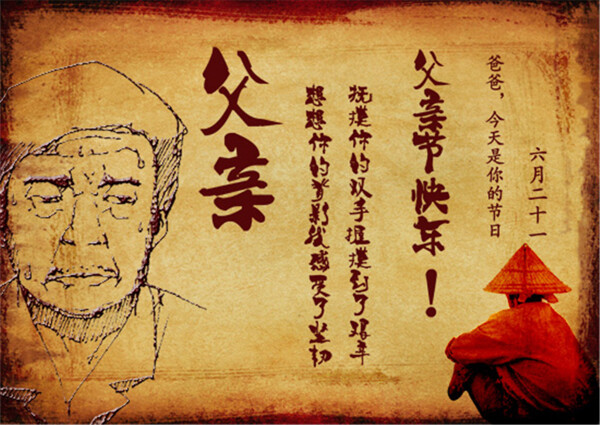 六月二十一
爸爸，今天是你的节日
父亲节快乐！
抚摸你的双手我摸到了艰辛
想想你的背影我感受了坚韧
父亲